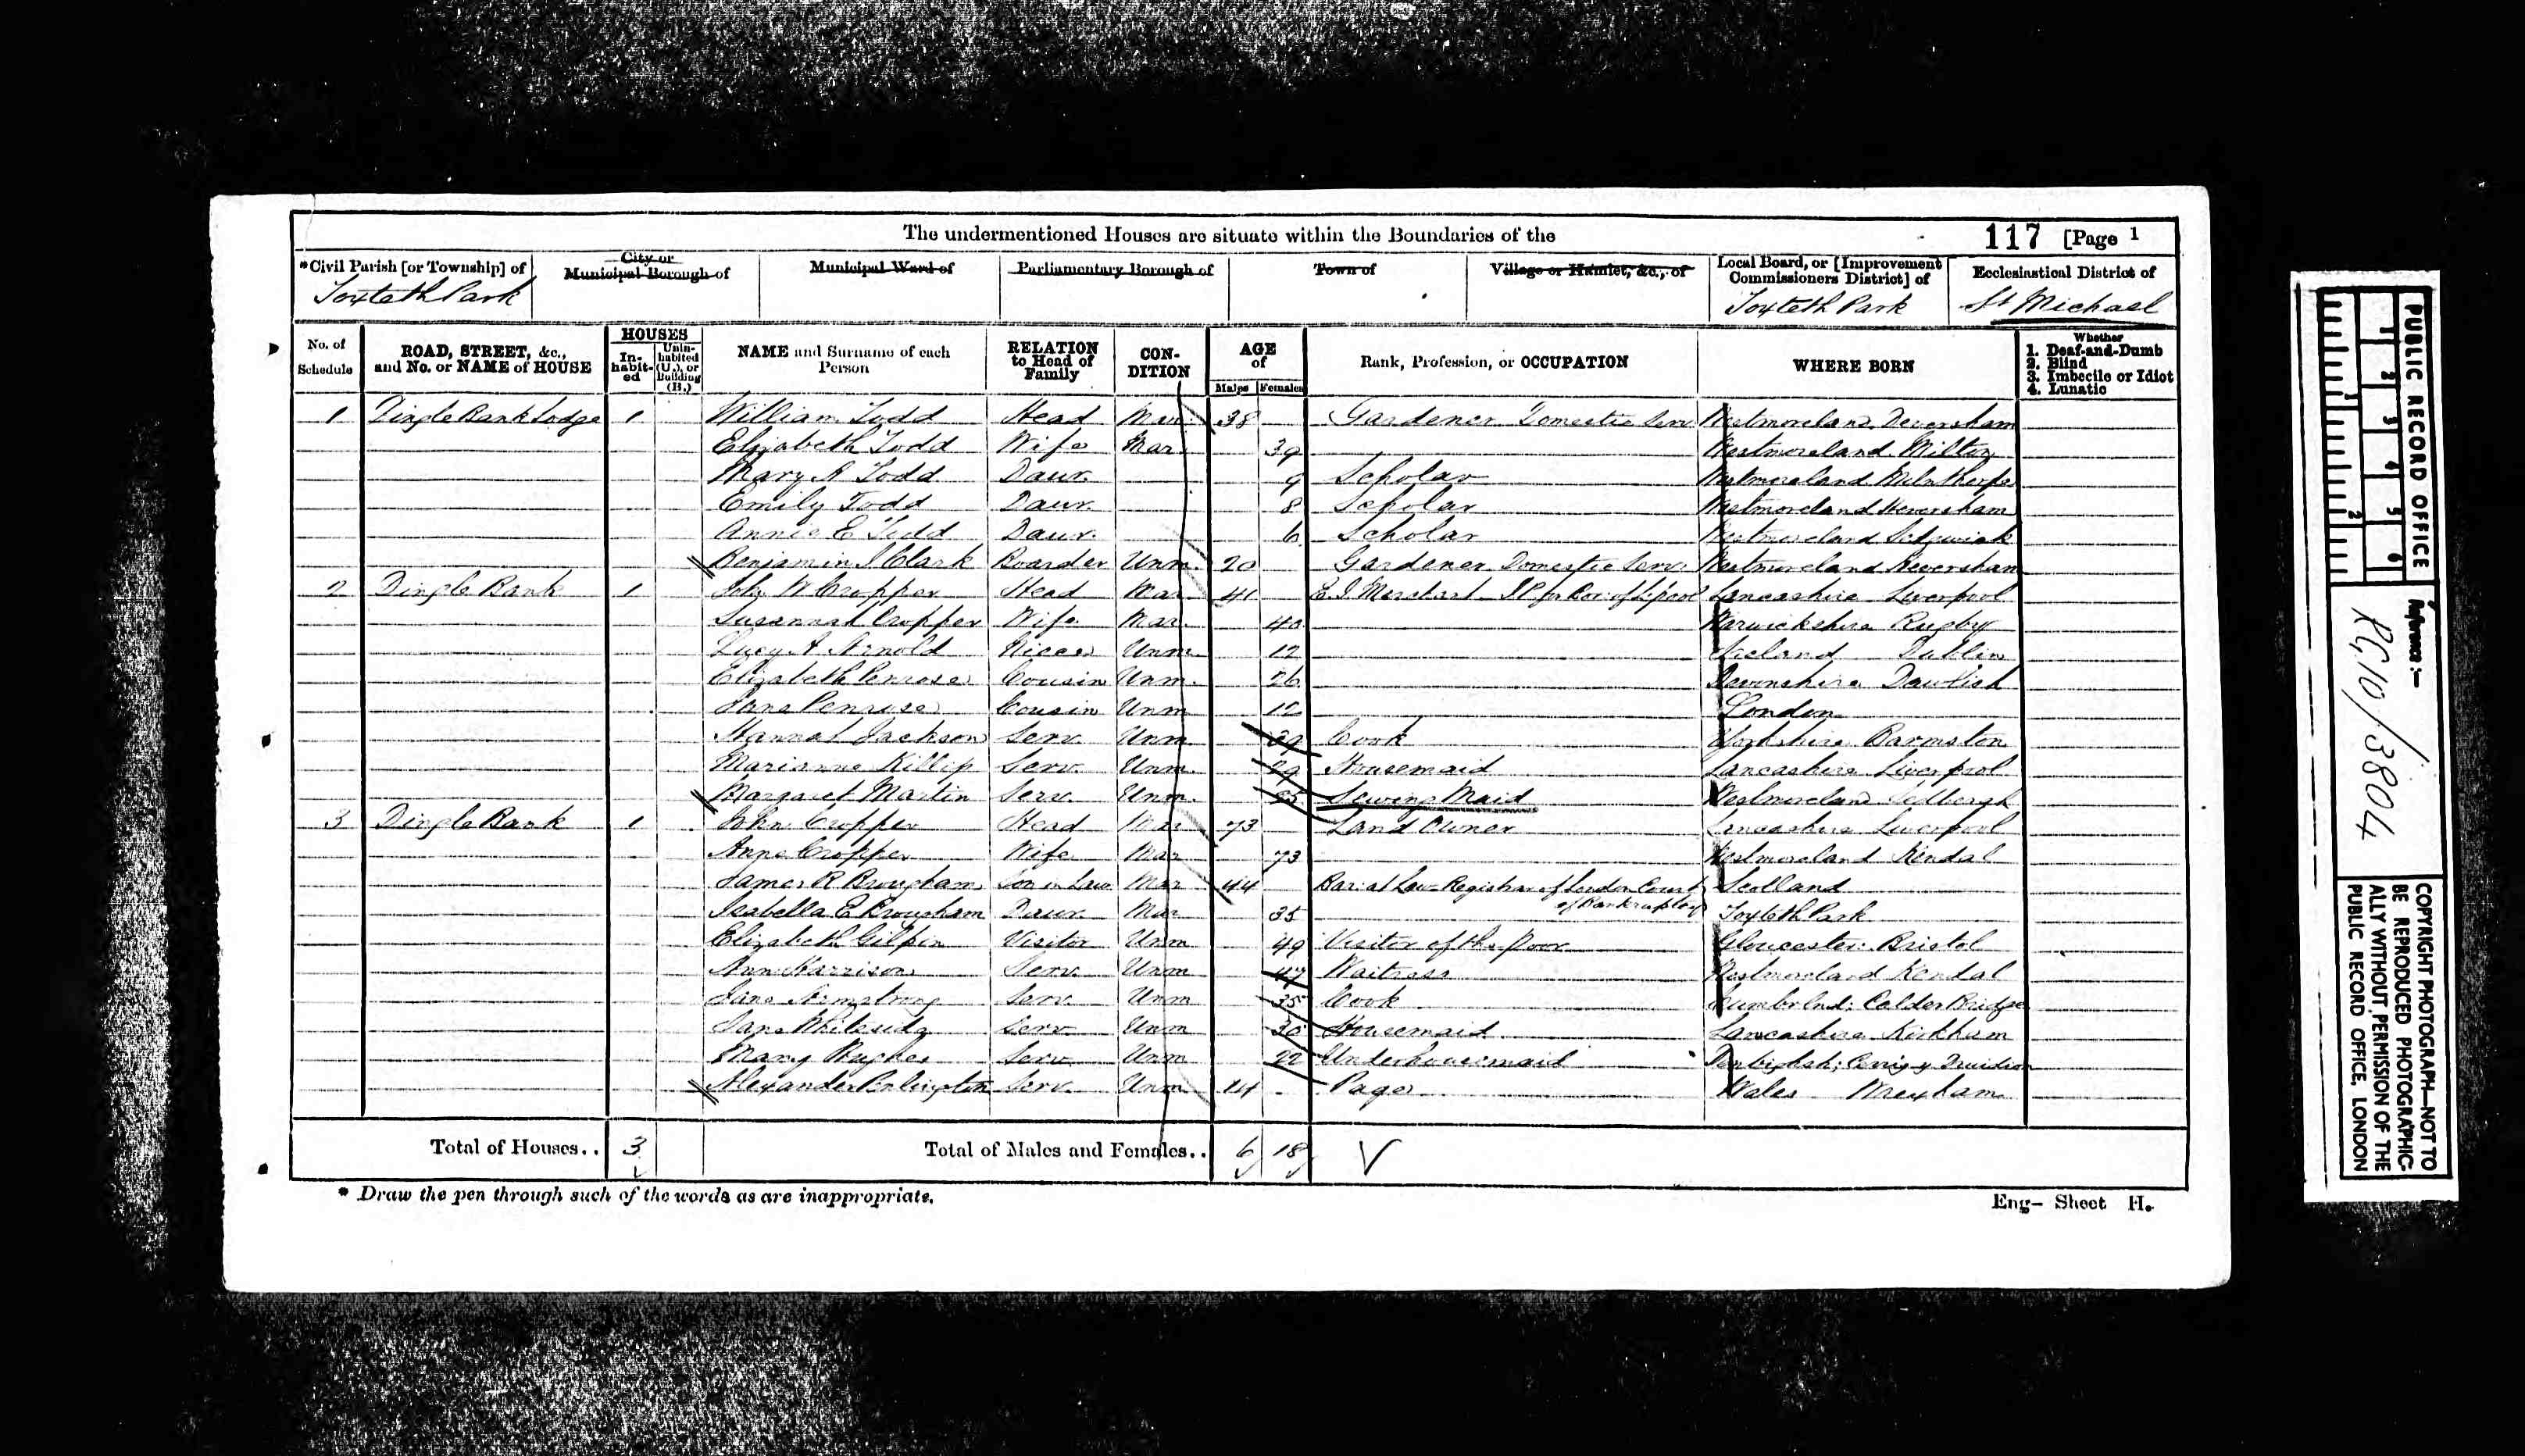 The undermentioned Houses are situate within the Boundaries of the 117 [Page 1
*Civil Parish [or Township] of
Toxteth Park
City or Municipal Borough of
Municipal Ward of
Parliamentary Borough of
Town of
Village or Hamlet, &c., of
Local Board, or [Improvement Commissioners District] of
Toxteth Park
Ecclesiastical District of
St Michael
No. of Schedule
ROAD, STREET, &c., and No. or NAME of HOUSE
HOUSES
In-habit-ed
Unin-habited (U.), or Building (B.)
NAME and Surname of each Person
RELATION to Head of Family
CON-DITION
AGE of
Males Females
Rank, Profession, or OCCUPATION
WHERE BORN
Whether
1. Deaf-and-Dumb
2. Blind
3. Imbecile or Idiot
4. Lunatic
1 Dingle Bank Lodge 1 William Todd Head Mar. 38 Gardener Domestic Serv Westmoreland
Elizabeth Todd Wife Mar. 39 Westmoreland Milton
Mary A Todd Daur. 9 Scholar Westmoreland Milnthorpe
Emily Todd Daur. 8 Scholar Westmoreland Heversham
Annie E Todd Daur. 6 Scholar Westmoreland Sedgwick
Benjamin J Clark Boarder Unm. 20 Gardener Domestic Serv. Westmoreland Heversham
2 Dingle Bank 1 John W Cropper Head Mar 41 E. I. Merchant J P for Bor: of L'pool Lancashire Liverpool
Susannah Cropper Wife Mar. 40 Warwickshire Rugby
Lucy A Arnold Niece Unm 12 Ireland Dublin
Elizabeth Penrose Cousin Unm. 26 Devonshire Dawlish
Jane Penrose Cousin Unm 12 London
Hannah Jackson Serv. Unm 29 Cook Yorkshire Barmston
Marianne Killip Serv. Unm. 29 Housemaid Lancashire Liverpool
Margaret Martin Serv. Unm. 25 Sewing Maid Westmoreland Sedbergh
3 Dingle Bank 1 John Cropper Head Mar 73 Land Owner Lancashire Liverpool
Anne Cropper Wife Mar 73 Westmoreland Kendal
James R Brougham Son in Law Mar 44 Bar: at Law Registrar of London Court of Bankruptcy Scotland
Isabella E Brougham Daur. Mar 35 Toxteth Park
Elizabeth Gilpin Visitor Unm 49 Visitor of the Poor Gloucester: Bristol
Ann Harrison Serv. Unm 47 Waitress Westmoreland Kendal
Jane Armstrong Serv. Unm 35 Cook Cumberlnd: Calder Bridge
Jane Serv Unm 30 Housemaid Lancashire Kirkham
Mary Hughes Serv. Unm 22 Underhousemaid Denbighsh: Cerrig y Druidion
Alexander Serv. Unm. 14 Page Wales Wrexham
Total of Houses.. 3
Total of Males and Females.. 6 18
* Draw the pen through such of the words as are inappropriate.
Eng- Sheet H.
PUBLIC RECORD OFFICE
1 2 3 4 5 6
1 2
Reference :-
RG10/3804
COPYRIGHT PHOTOGRAPH-NOT TO
BE REPRODUCED PHOTOGRAPHIC-
ALLY WITHOUT PERMISSION OF THE
PUBLIC RECORD OFFICE, LONDON